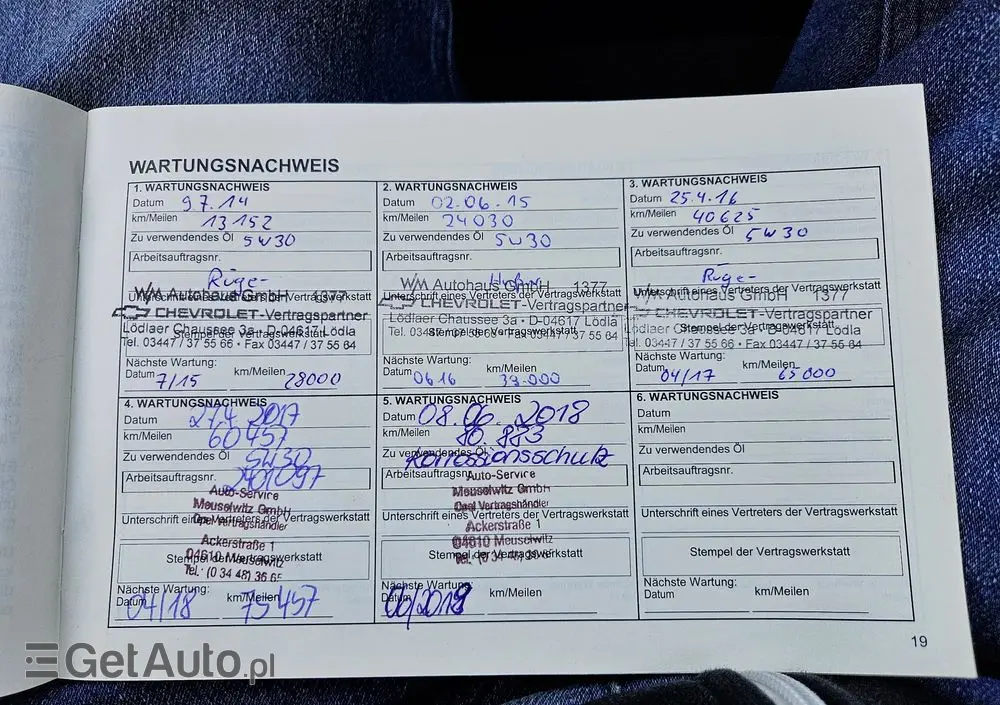 WARTUNGSNACHWEIS
1. WARTUNGSNACHWEIS
Datum 9.7.14
km/Meilen 13152
Zu verwendendes Öl 5W30
Arbeitsauftragsnr.
Unterschrift eines Vertreters der Vertragswerkstatt
W/M Autohaus GmbH 1377
CHEVROLET-Vertragspartner
Lödlaer Chaussee 3a · D-04617 Lödla
Stempel der Vertragswerkstatt
Tel. 03447 / 37 55 66 · Fax 03447 / 37 55 64
Nächste Wartung:
Datum 7/15 km/Meilen 28000
2. WARTUNGSNACHWEIS
Datum 02.06.15
km/Meilen 24030
Zu verwendendes Öl 5W30
Arbeitsauftragsnr.
W/M Autohaus GmbH 1377
Unterschrift eines Vertreters der Vertragswerkstatt
CHEVROLET-Vertragspartner
Lödlaer Chaussee 3a · D-04617 Lödla
Stempel der Vertragswerkstatt
Tel. 03447 / 37 55 66 · Fax 03447 / 37 55 64
Nächste Wartung:
Datum 06 16 km/Meilen 39.000
3. WARTUNGSNACHWEIS
Datum 25.4.16
km/Meilen 40625
Zu verwendendes Öl 5W30
Arbeitsauftragsnr.
Unterschrift eines Vertreters der Vertragswerkstatt
W/M Autohaus GmbH 1377
CHEVROLET-Vertragspartner
Lödlaer Chaussee 3a · D-04617 Lödla
Stempel der Vertragswerkstatt
Tel. 03447 / 37 55 66 · Fax 03447 / 37 55 64
Nächste Wartung:
Datum 04/17 km/Meilen 65000
4. WARTUNGSNACHWEIS
Datum 27.4.2017
km/Meilen 60457
Zu verwendendes Öl 5W30
Arbeitsauftragsnr.
Auto-Service
Meuselwitz GmbH
Unterschrift eines Vertreters der Vertragswerkstatt
Opel Vertragshändler
Ackerstraße 1
04610 Meuselwitz
Stempel der Vertragswerkstatt
Tel.: (0 34 48) 36 65
Nächste Wartung:
Datum 04/18 km/Meilen 75457
5. WARTUNGSNACHWEIS
Datum 08.06.2018
km/Meilen 80.883
Zu verwendendes Öl Korrossionsschutz
Arbeitsauftragsnr.
Auto-Service
Meuselwitz GmbH
Opel Vertragshändler
Unterschrift eines Vertreters der Vertragswerkstatt
Ackerstraße 1
04610 Meuselwitz
Stempel der Vertragswerkstatt
Nächste Wartung:
Datum km/Meilen
6. WARTUNGSNACHWEIS
Datum
km/Meilen
Zu verwendendes Öl
Arbeitsauftragsnr.
Unterschrift eines Vertreters der Vertragswerkstatt
Stempel der Vertragswerkstatt
Nächste Wartung:
Datum km/Meilen
19
GetAuto.pl